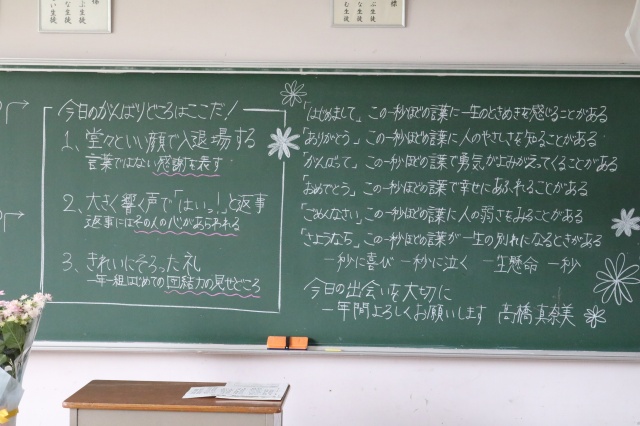 今日のがんばりどころはここだ！
1、堂々といい顔で入退場する
言葉ではない感謝を表す
2、大きく響く声で「はいっ！」と返事
返事にはその人の心があらわれる
3、きれいにそろった礼
一年一組はじめての団結力の見せどころ
「はじめまして」この一秒ほどの言葉に一生のときめきを感じることがある
「ありがとう」この一秒ほどの言葉に人のやさしさを知ることがある
「がんばって」この一秒ほどの言葉で勇気がよみがえってくることがある
「おめでとう」この一秒ほどの言葉で幸せにあふれることがある
「ごめんなさい」この一秒ほどの言葉に人の弱さをみることがある
「さようなら」この一秒ほどの言葉が一生の別れになるときがある
一秒に喜び 一秒に泣く 一生懸命 一秒
今日の出会いを大切に
一年間よろしくお願いします 髙橋真奈美